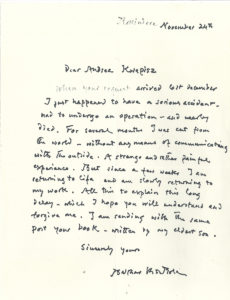 November 24th
Dear Andrea
When your request arrived last December
I just happened to have a serious accident -
had to undergo an operation - and nearly
died. For several months I was cut from
the world - without any means of communicating
with the outside. A strange and rather painful
experience. But since a few weeks I am
returning to life and am slowly returning to
my work. All this to explain this long
delay - which I hope you will understand and
forgive me. I am sending with the same
post your book - written by my eldest son.
Sincerely yours